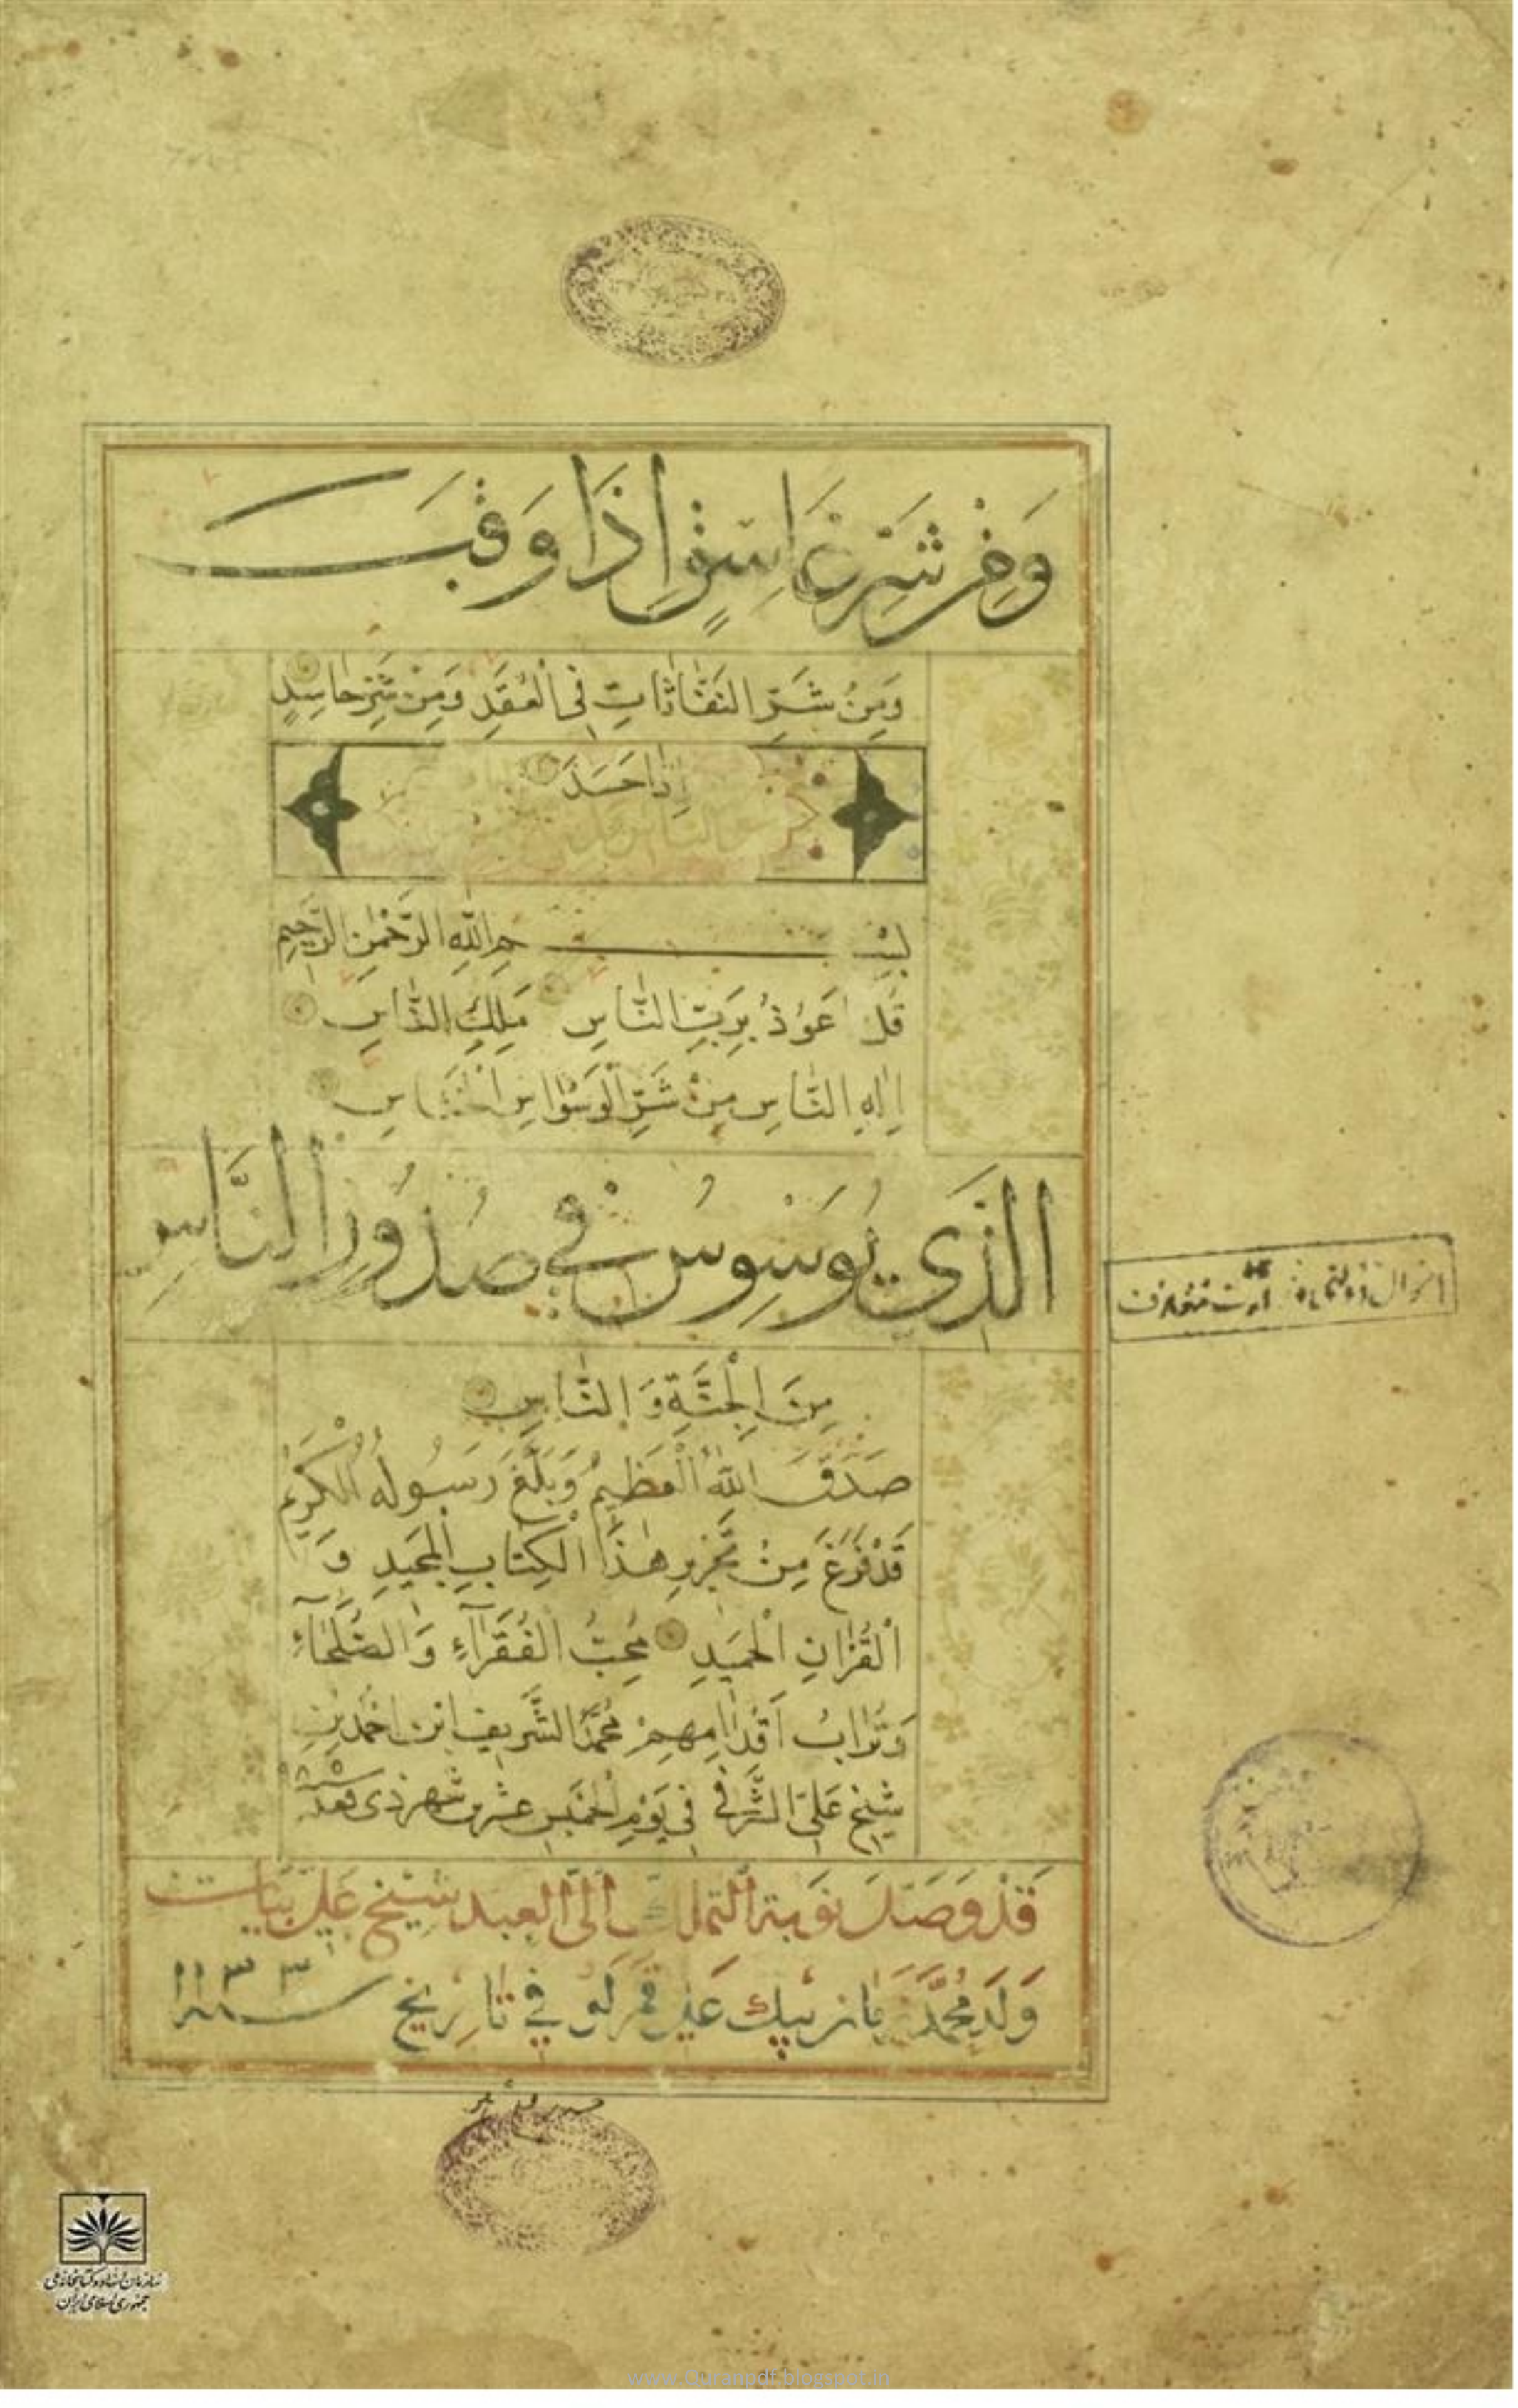 وَمِنْ شَرِّ غَاسِقٍ اِذَا وَقَبَ
وَمِنْ شَرِّ النَّفَّاثَاتِ فِى الْعُقَدِ وَمِنْ شَرِّ حَاسِدٍ
اِذَا حَسَدَ
بِسْمِ اللهِ الرَّحْمٰنِ الرَّحِيمِ
قُلْ اَعُوْذُ بِرَبِّ النَّاسِ مَلِكِ النَّاسِ
اِلٰهِ النَّاسِ مِنْ شَرِّ الْوَسْوَاسِ الْخَنَّاسِ
الَّذِي يُوَسْوِسُ فِي صُدُورِ النَّاسِ
مِنَ الْجِنَّةِ وَالنَّاسِ
صَدَقَ اللهُ الْعَظِيمُ وَبَلَّغَ رَسُولُهُ الْكَرِيمُ
قَدْ فَرَغَ مِنْ تَحْرِيرِ هٰذَا الْكِتَابِ الْمَجِيدِ وَ
الْقُرْاٰنِ الْحَمِيدِ مُحِبُّ الْفُقَرَآءِ وَالصُّلَحَآءِ
وَتُرَابُ اَقْدَامِهِمْ مُحَمَّد الشَّرِيف ابْن اَحْمَد بْنِ
شَيْخ عَلِىّ الشَّرَفِى فِى يَوْمِ الْخَمِيس عشرين شهر ذى قعده
قَدْ وَصَلَ نَوْبَة التملك اِلَى الْعَبد شيخ عَلى بيات
وَلَد مُحَمَّد في تاريخ سنه ١١٣٣
سازمان اسناد و کتابخانه ملی
جمهوری اسلامی ایران
www.Quranpdf.blogspot.in